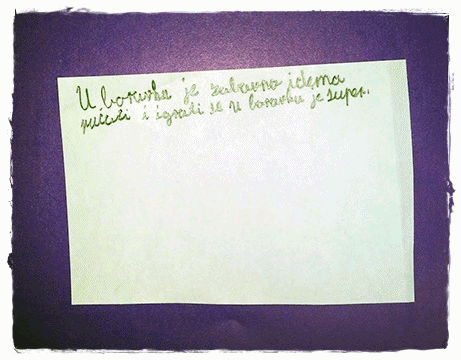 U boravku je zabavno idemo
ručati i igrati se u boravku je super.